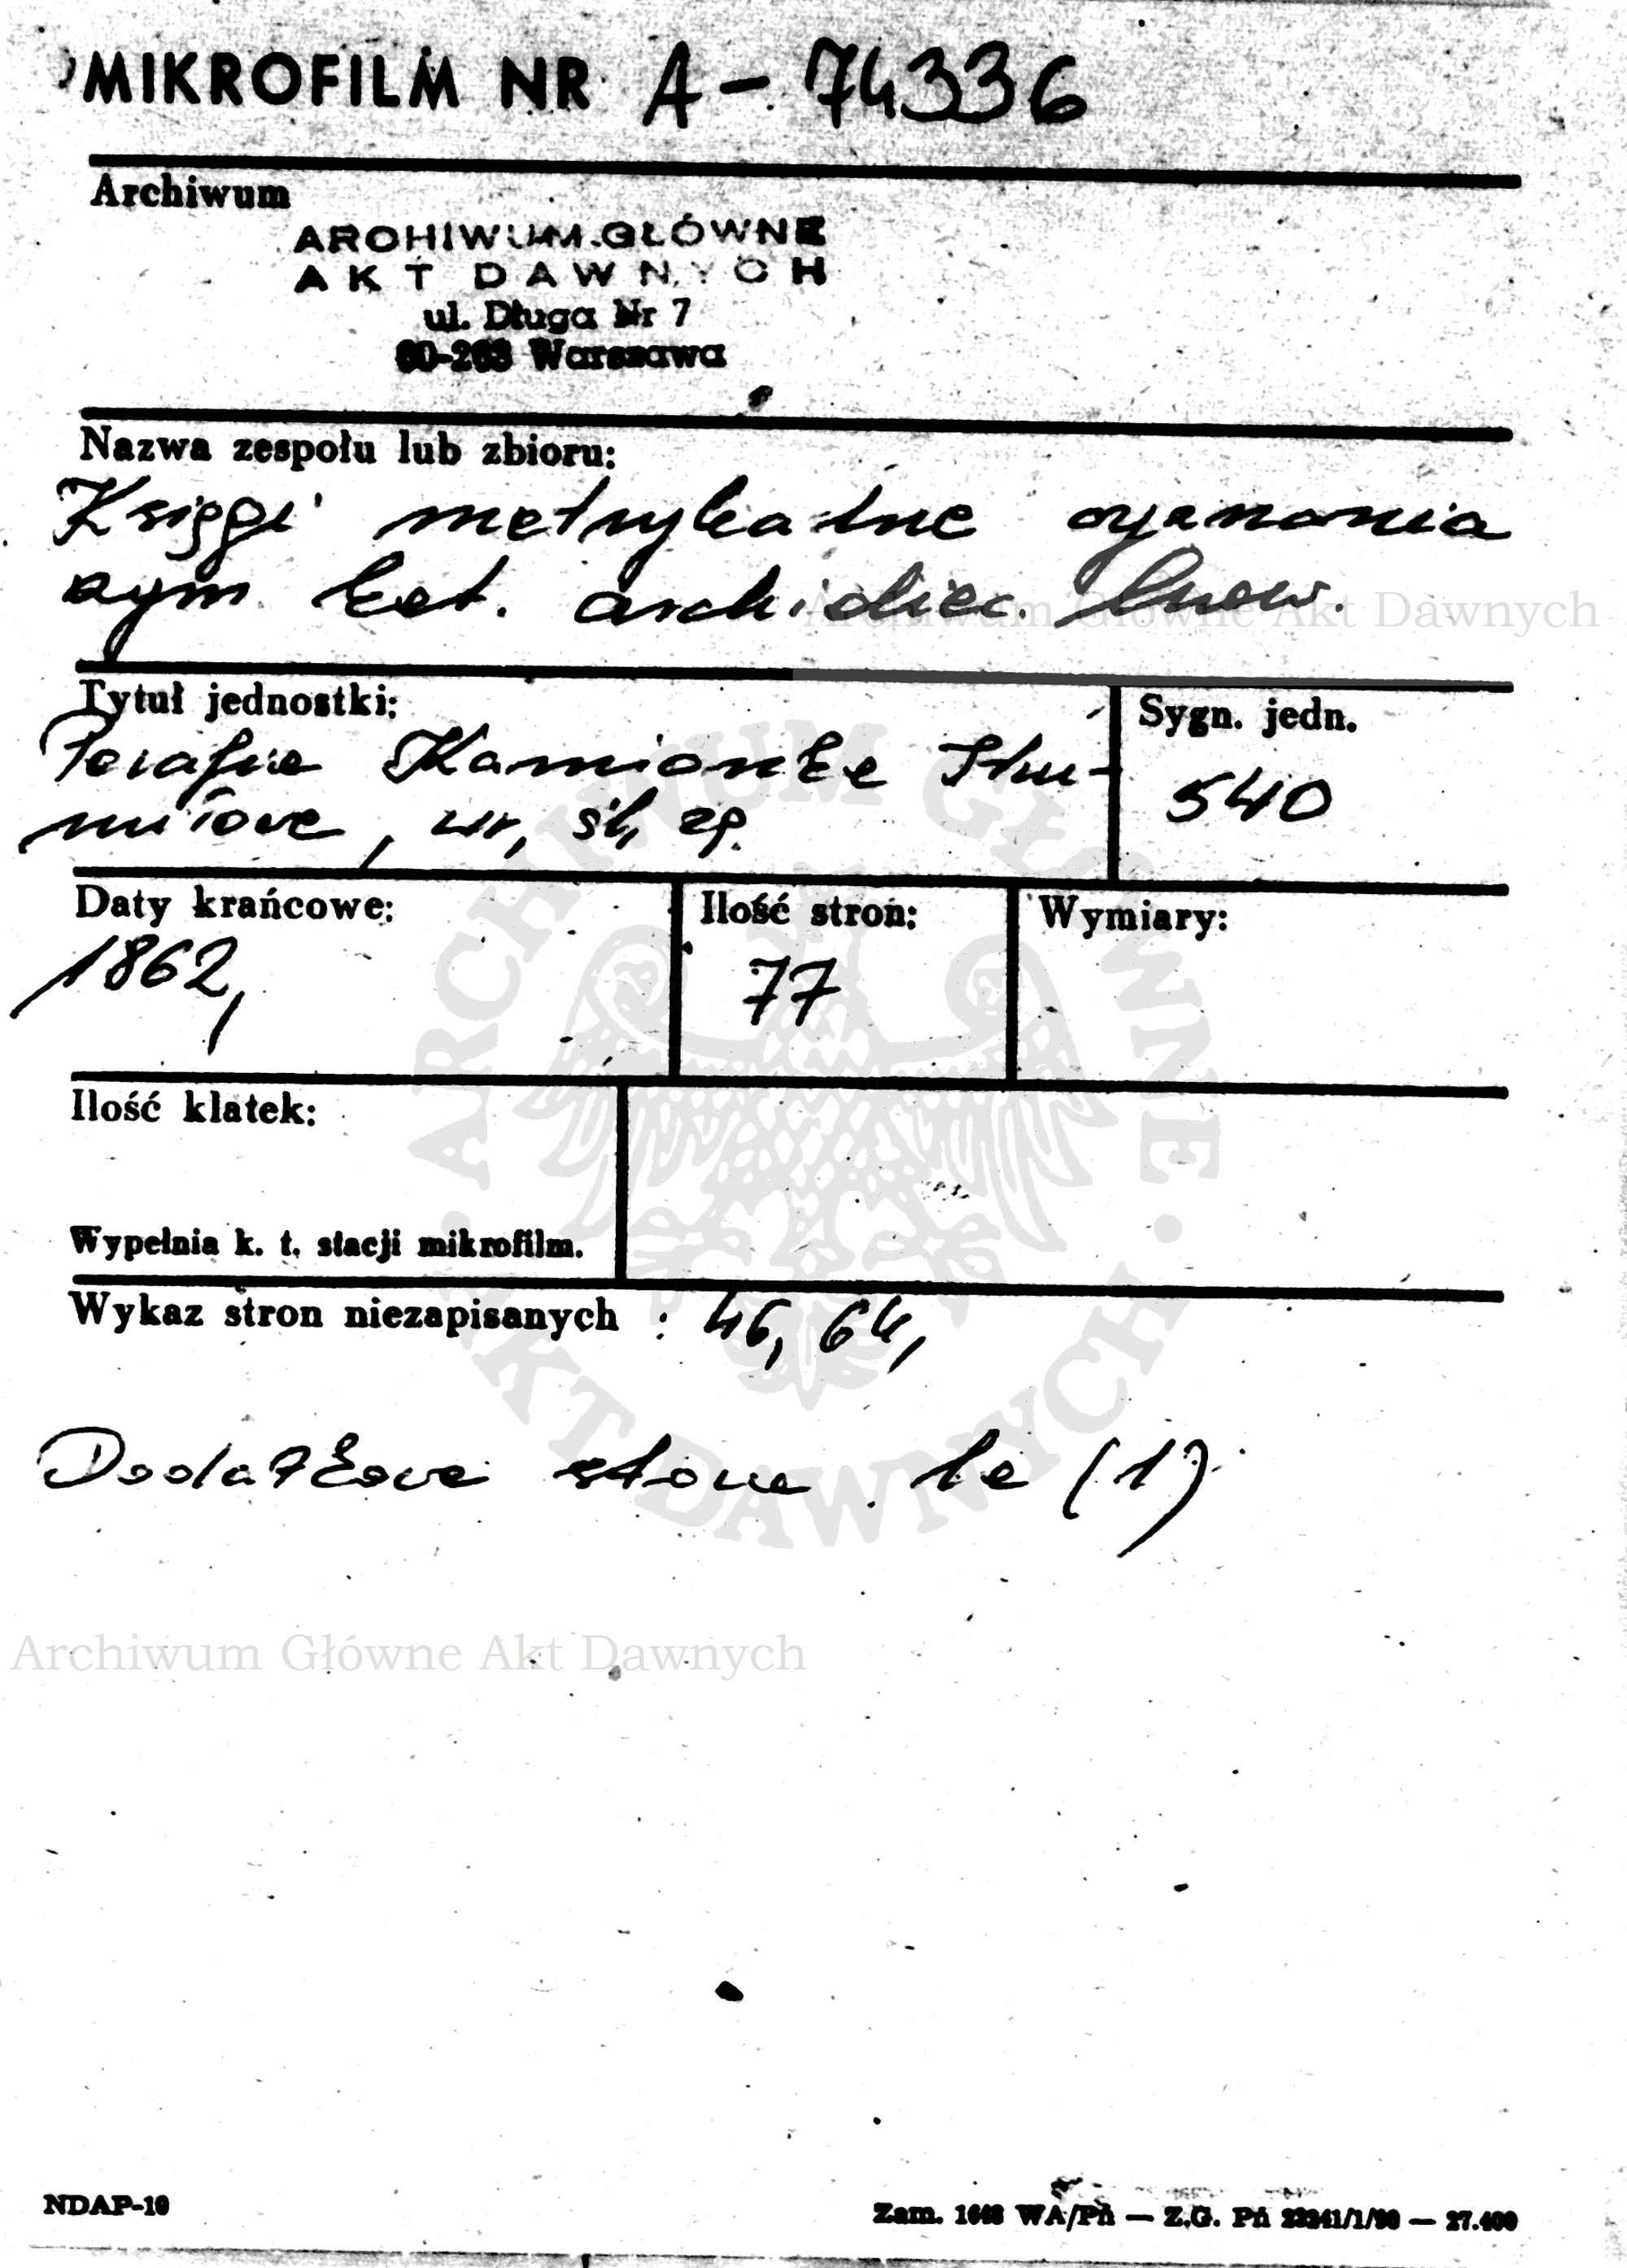 MIKROFILM NR A-74336
Archiwum
ARCHIWUM GŁÓWNE
AKT DAWNYCH
ul. Długa Nr 7
00-263 Warszawa
Nazwa zespołu lub zbioru:
Księgi metrykalne wyznania
rzym. kat. archidiec. lwow.
Archiwum Główne Akt Dawnych
Tytuł jednostki:
Parafia Kamionka Stru-
miłowa, ur, śl, zg.
Sygn. jedn.
540
Daty krańcowe:
1862,
Ilość stron:
77
Wymiary:
Ilość klatek:
Wypełnia k. t. stacji mikrofilm.
Wykaz stron niezapisanych : 46, 64,
Dodatkowe strone 1a (1)
ARCHIWUM GŁÓWNE AKT DAWNYCH
Archiwum Główne Akt Dawnych
NDAP-10
Zam. WA/Pń — Z.G. Pń — 27.400